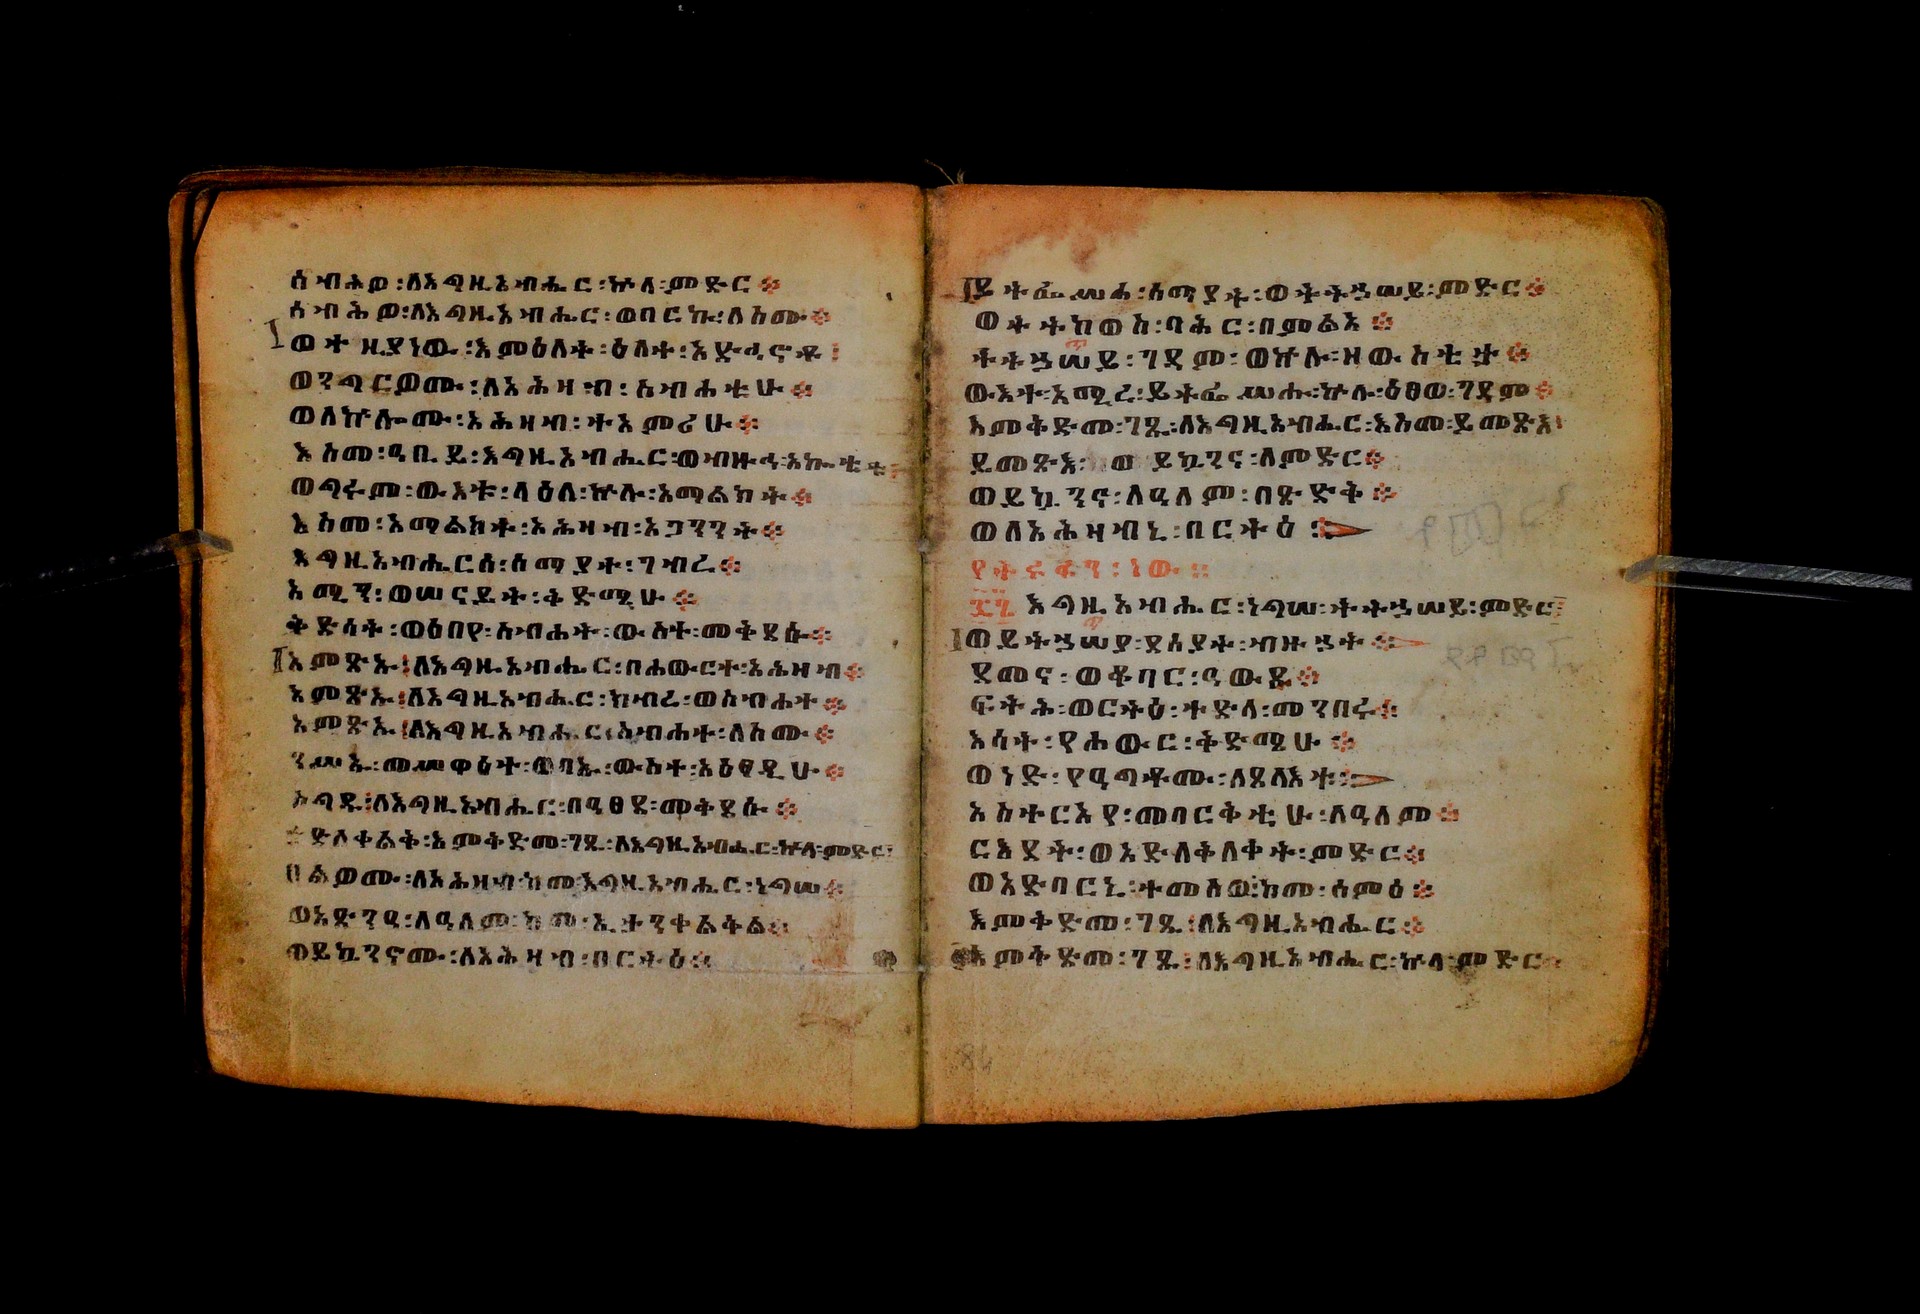 ሰብሕዎ፡ለእግዚአብሔር፡ኵላ፡ምድር፨
ሰብሕዎ፡ለእግዚአብሔር፡ወባርኩ፡ለስሙ፨
ወተዚያነው፡እምዕለት፡ዕለተ፡አድኅኖቶ፡
ወንግርዎሙ፡ለአሕዛብ፡ስብሐቲሁ፨
ወለኵሎሙ፡አሕዛብ፡ተአምሪሁ፨
እስመ፡ዓቢይ፡እግዚአብሔር፡ወብዙኅ፡አኰቴቱ፨
ወግሩም፡ውእቱ፡ላዕለ፡ኵሉ፡አማልክት፨
እስመ፡አማልክተ፡አሕዛብ፡አጋንንት፨
እግዚአብሔርሰ፡ሰማያተ፡ገብረ፨
አሚን፡ወሠናይት፡ቅድሜሁ፨
ቅድሳት፡ወዕበየ፡ስብሐት፡ውስተ፡መቅደሱ፨
አምጽኡ፡ለእግዚአብሔር፡በሐውርተ፡አሕዛብ፨
አምጽኡ፡ለእግዚአብሔር፡ክብረ፡ወስብሐተ፨
አምጽኡ፡ለእግዚአብሔር፡ስብሐተ፡ለስሙ፨
ንሥኡ፡መሥዋዕተ፡ወባኡ፡ውስተ፡አዕፀዲሁ፨
ስግዱ፡ለእግዚአብሔር፡በዓፀደ፡መቅደሱ፨
ትድለቀልቅ፡እምቅድመ፡ገጹ፡ለእግዚአብሔር፡ኵላ፡ምድር፨
በልዎሙ፡ለአሕዛብ፡ከመ፡እግዚአብሔር፡ነግሠ፨
ወአጽንዓ፡ለዓለም፡ከመ፡ኢታንቀልቅል፨
ወይኴንኖሙ፡ለአሕዛብ፡በርትዕ፨
ይትፌሥሐ፡ሰማያት፡ወትትኃሠይ፡ምድር፨
ወትትከወስ፡ባሕር፡በምልአ፨
ትትኃሠይ፡ገዳም፡ወኵሉ፡ዘውስቴታ፨
ውእተ፡አሚረ፡ይትፌሥሑ፡ኵሉ፡ዕፀወ፡ገዳም፨
እምቅድመ፡ገጹ፡ለእግዚአብሔር፡እስመ፡ይመጽእ፡
ይመጽእ፡ወይኴንና፡ለምድር፨
ወይኴንኖ፡ለዓለም፡በጽድቅ፨
ወለአሕዛብኒ፡በርትዕ፨
የትሩፋን፡ነው፨
፺፮ እግዚአብሔር፡ነግሠ፡ትትኃሠይ፡ምድር፨
ወይትኃሠያ፡ደሰያት፡ብዙኃት፨
ደመና፡ወቆባር፡ዓውዱ፨
ፍትሕ፡ወርትዕ፡ተድላ፡መንበሩ፨
እሳት፡የሐውር፡ቅድሜሁ፨
ወነድ፡የዓግቶሙ፡ለጸላእቱ፨
አስተርአየ፡መባርቅቲሁ፡ለዓለም፨
ርእየት፡ወአድለቅለቀት፡ምድር፨
ወአድባርኒ፡ተመሰዉ፡ከመ፡ሰምዕ፨
እምቅድመ፡ገጹ፡ለእግዚአብሔር፨
እምቅድመ፡ገጹ፡ለእግዚአብሔር፡ኵላ፡ምድር፨